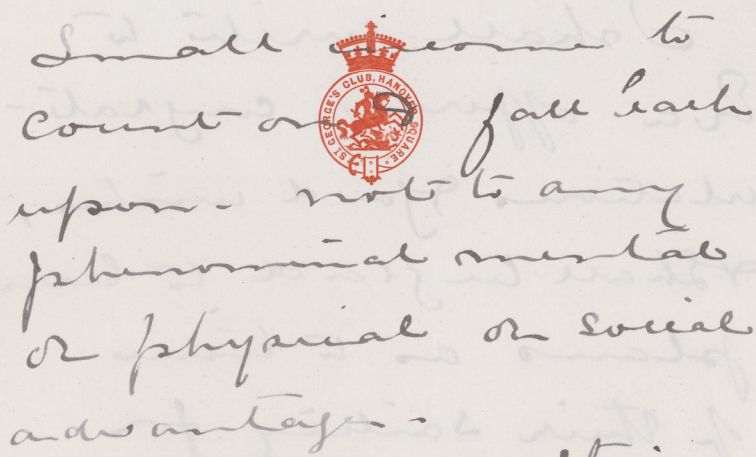 Small income to
ST GEORGE'S CLUB, HANOVER SQUARE.
count on & fall back
upon - not to any
phenominal mental
or physical or social
advantage -